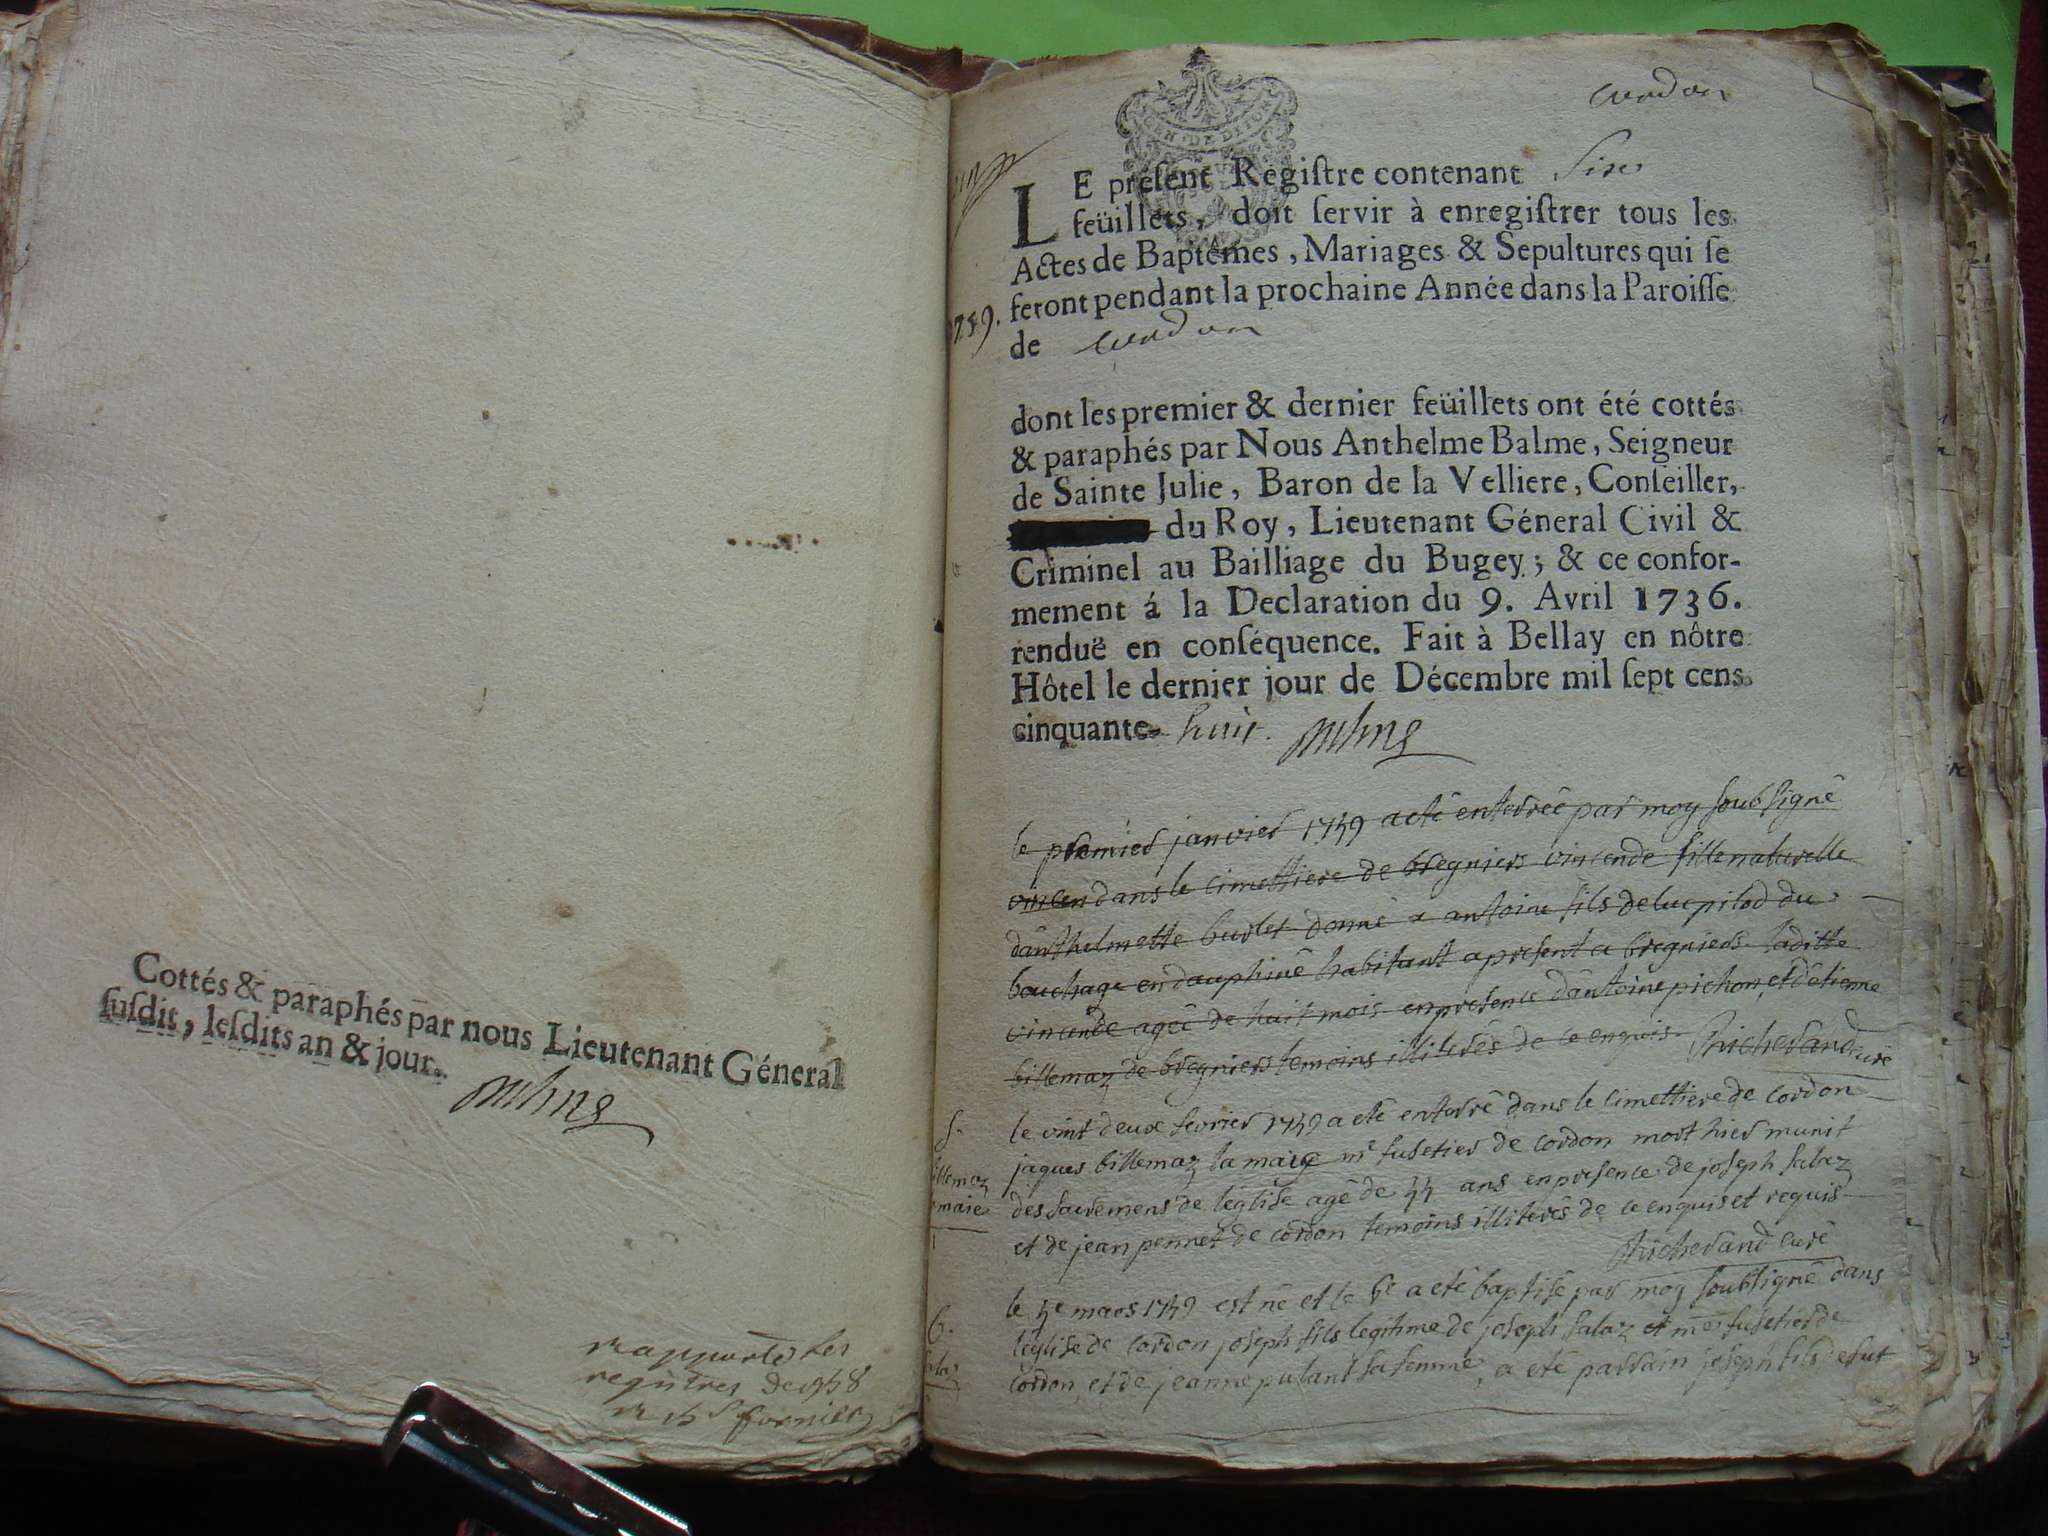 Cottés & paraphés par nous Lieutenant Géneral
susdit, lesdits an & jour.
rapporté les
registres de 1758
cordon
LE présent Registre contenant Six
feüillets, doit servir à enregistrer tous les
Actes de Baptêmes, Mariages & Sepultures qui se
feront pendant la prochaine Année dans la Paroisse
1759.
de cordon
dont les premier & dernier feüillets ont été cottés
& paraphés par Nous Anthelme Balme, Seigneur
de Sainte Julie, Baron de la Velliere, Conseiller,
du Roy, Lieutenant Géneral Civil &
Criminel au Bailliage du Bugey; & ce confor-
mement á la Declaration du 9. Avril 1736.
renduë en conséquence. Fait à Bellay en nôtre
Hôtel le dernier jour de Décembre mil sept cens
cinquante huit.
le premier janvier 1759 a eté enterrée par moy soubsigné
vincen dans le cimettiere de bregniers vincende fille naturelle
danthelmette burlet donné a antoine fils de luc pilod du
bouchage en dauphiné habitant apresent a bregniers laditte
vincende agée de huit mois en presence dantoine pichon et detienne
billemaz de bregniers temoins illiterés de ce enquis Richerand curé
S.
le vint deux fevrier 1759 a eté enterré dans le cimettiere de cordon
billemaz
jaques billemaz la maie me fusetier de cordon mort hier munit
maie
des sacremens de léglise agé de 44 ans en presence de joseph salaz
et de jean pennet de cordon temoins illiterés de ce enquis et requis
Richerand curé
b.
le 5e mars 1759 est né et le 6e a eté baptisé par moy soubsigné dans
léglise de cordon joseph fils legitime de joseph salaz et me fusetier de
cordon et de jeanne putant sa femme, a eté parrain joseph fils de fut